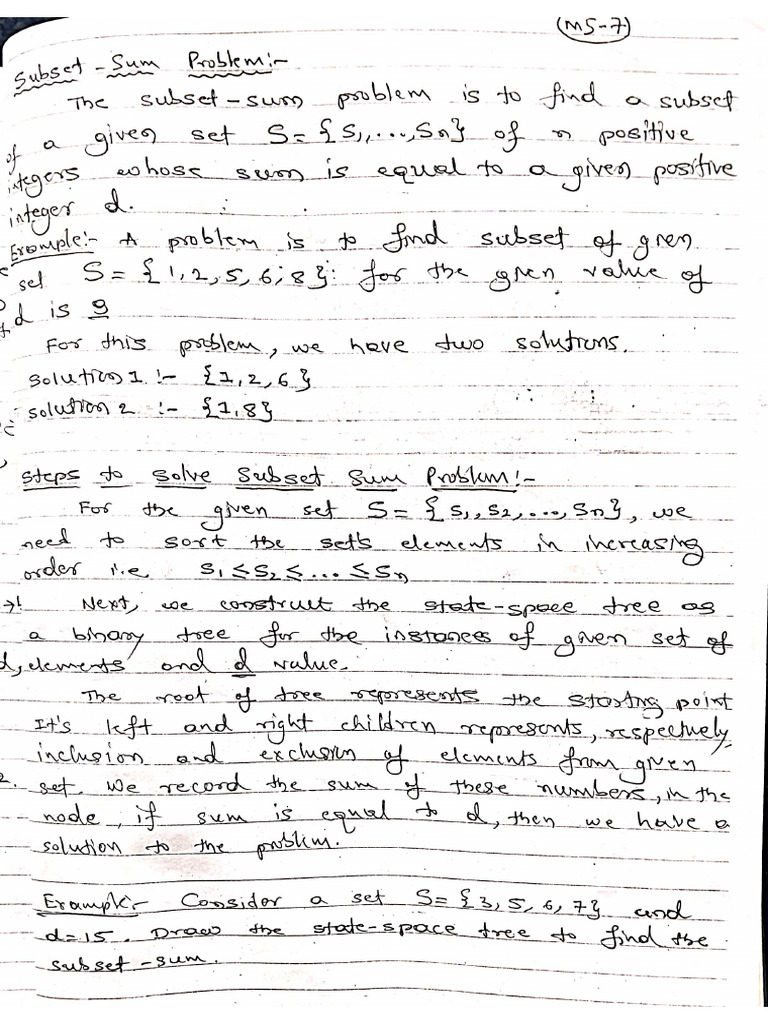 (M5-7)
Subset-Sum Problem:-
The subset-sum problem is to find a subset
of a given set S= {S1,...,Sn} of n positive
integers whose sum is equal to a given positive
integer d.
Example:- A problem is to find subset of given
set S= {1,2,5,6,8} for the given value of
d is 9
For this problem, we have two solutions.
solution 1 :- {1,2,6}
solution 2 :- {1,8}
Steps to solve Subset Sum Problem:-
For the given set S= {S1,S2,...,Sn}, we
need to sort the sets elements in increasing
order i.e S1≤S2≤...≤Sn
Next, we construct the state-space tree as
a binary tree for the instances of given set of
elements and d value.
The root of tree represents the starting point
It's left and right children represents, respectively,
inclusion and exclusion of elements from given
set. We record the sum of these numbers, in the
node, if sum is equal to d, then we have a
solution to the problem.
Example:- Consider a set S= {3,5,6,7} and
d=15. Draw the state-space tree to find the
subset-sum.